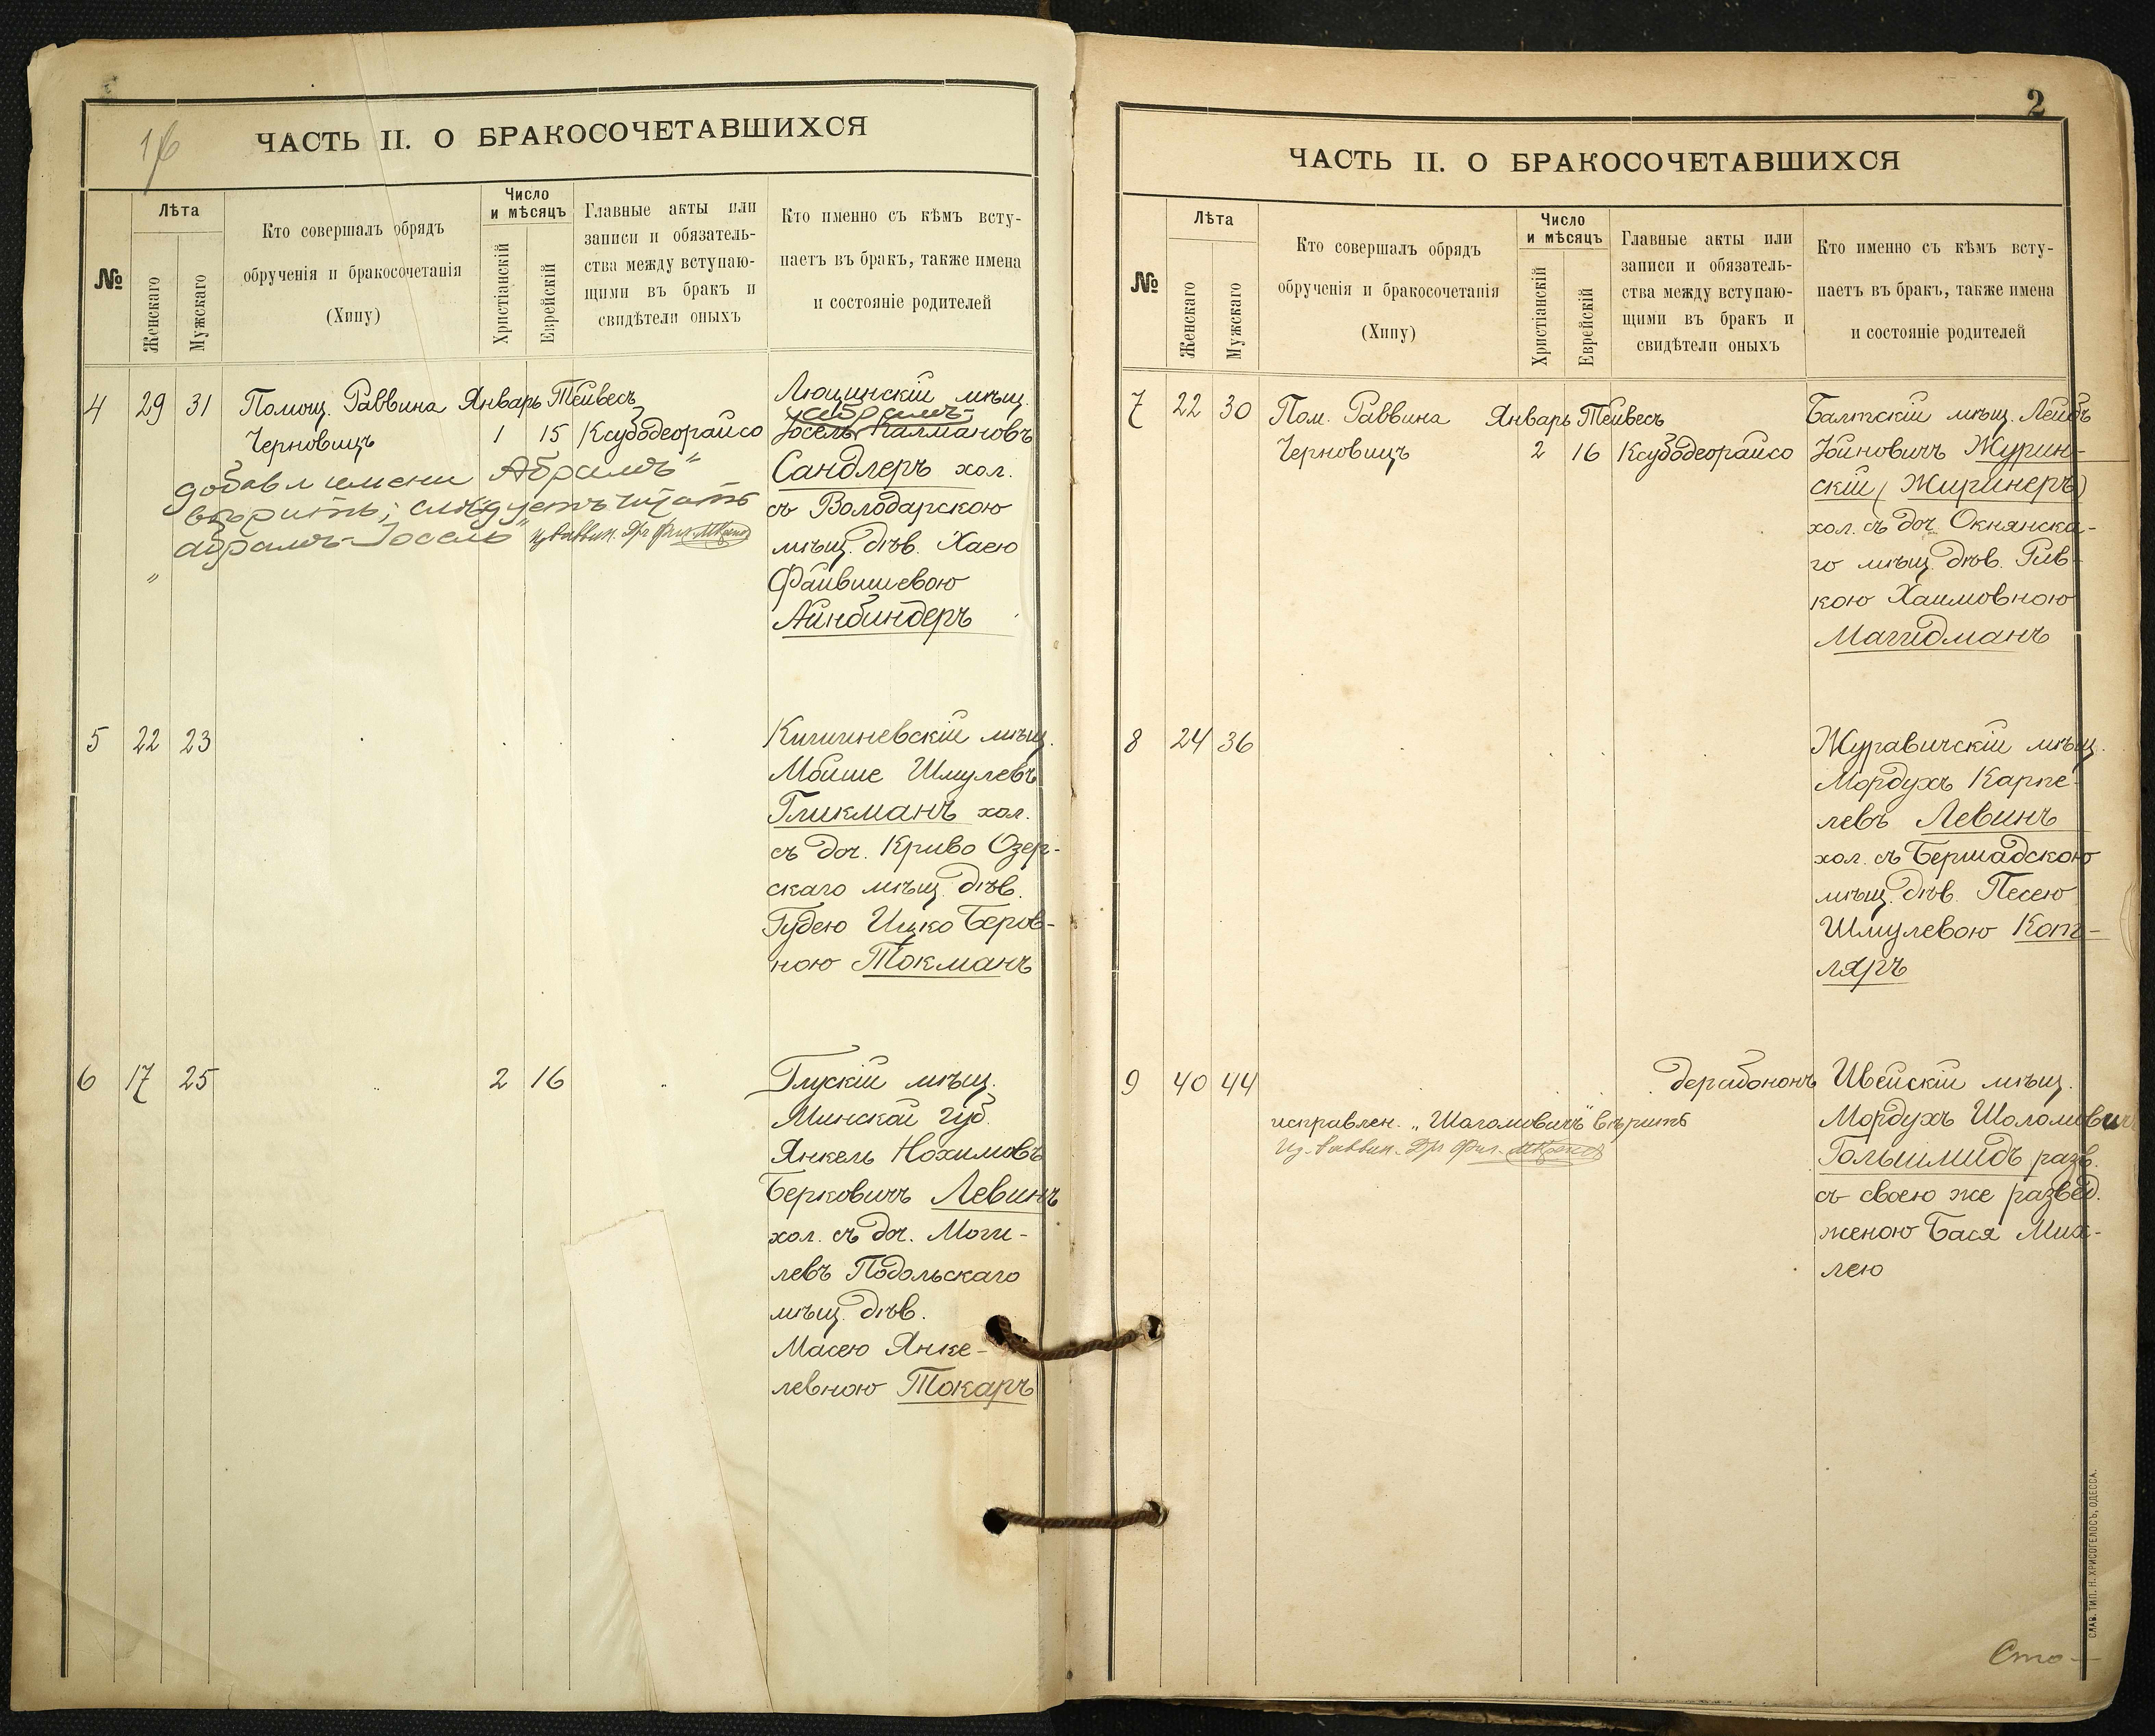 1б
ЧАСТЬ II. О БРАКОСОЧЕТАВШИХСЯ
№
Лѣта
Женскаго
Мужскаго
Кто совершалъ обрядъ
обрученія и бракосочетанія
(Хипу)
Число
и мѣсяцъ
Христіанскій
Еврейскій
Главные акты или
записи и обязатель-
ства между вступаю-
щими въ бракъ и
свидѣтели оныхъ
Кто именно съ кѣмъ всту-
паетъ въ бракъ, также имена
и состояніе родителей
4 29 31 Помощ. Раввина Январь Тейвесъ
Черновицъ 1 15 Ксубодеорайсо
добавл имени Абрамъ"
вѣрить; слѣдуетъ читать
абрамъ-Іосель"
Люцинскій мѣщ.
абрамъ-
Іосель Калмановъ
Сандлеръ хол.
съ Володарскою
мѣщ. дѣв. Хаею
Файвишевою
Айнбиндеръ
5 22 23
Кишиневскій мѣщ.
Мойше Шмулевъ
Гликманъ хол.
съ доч. Криво Озер-
скаго мѣщ. дѣв.
Гудею Ицко Беров-
ною Токманъ
6 17 25 2 16
Глускій мѣщ.
Минской губ.
Янкель Нохимовъ
Берковичъ Левинъ
хол. съ доч. Моги-
левъ Подольскаго
мѣщ. дѣв.
Масею Янке-
левною Токаръ
2
ЧАСТЬ II. О БРАКОСОЧЕТАВШИХСЯ
№
Лѣта
Женскаго
Мужскаго
Кто совершалъ обрядъ
обрученія и бракосочетанія
(Хипу)
Число
и мѣсяцъ
Христіанскій
Еврейскій
Главные акты или
записи и обязатель-
ства между вступаю-
щими въ бракъ и
свидѣтели оныхъ
Кто именно съ кѣмъ всту-
паетъ въ бракъ, также имена
и состояніе родителей
7 22 30 Пом. Раввина Январь Тейвесъ
Черновицъ 2 16 Ксубодеорайсо
Балтскій мѣщ. Лейбъ
Йойновичъ Журин-
скій (Жиринеръ)
хол. съ доч. Окнянска-
го мѣщ. дѣв. Рив-
кою Хаимовною
Магидманъ
8 24 36
Журавичскій мѣщ.
Мордухъ Карпе-
левъ Левинъ
хол. съ Бершадскою
мѣщ. дѣв. Песею
Шмулевою Кот-
ляръ
9 40 44 дерабононъ
исправлен. „Шоломовичъ" вѣрить
Ивейскій мѣщ.
Мордухъ Шоломовичъ
Гольшмидъ разв.
съ своею же развед.
женою Бася Мих-
лею
Сто-
СЛАВ. ТИП. Н. ХРИСОГЕЛОСЪ, ОДЕССА.